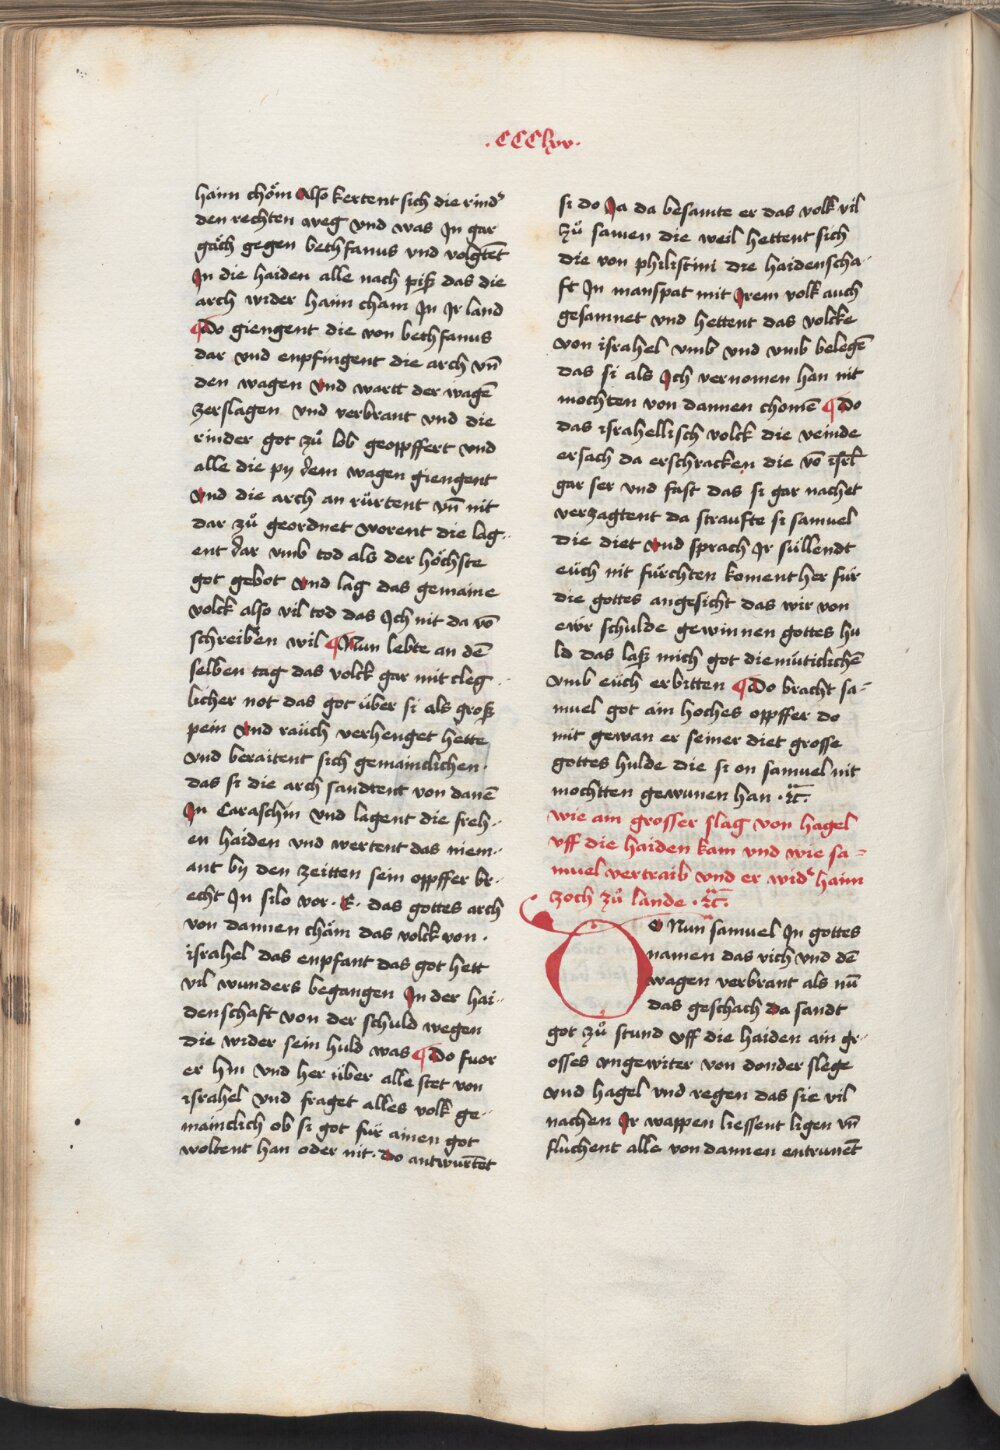 .CCClxv.
haim chöm Also kertent sich die rind᷑
den rechten weg vnd was Jn gar
gäch gegen bethfanus vnd volgte̅t
Jn die haiden alle nach piß das die
arch wider haim cham Jn Jr land
¶ Do giengent die von bethfanus
dar vnd enpfingent die arch vn̅
den wagen Vnd wartt der wage̅
zerslagen vnd verbrant vnd die
rinder got zů lob geoppffert vnd
alle die py dem wagen giengent
Vnd die arch an rürtent vn̅ nit
dar zů geordnet worent die lag-
ent dar vmb tod als der höchste
got gebot Vnd lag das gemaine
volck also vil tod das Jch nit da vo̅
schreiben wil ¶ Nun lebte an de̅
selben tag das volck gar mit cleg-
licher not das got über si als groß
pein Vnd räuch verhenget hette
vnd beraitent sich gemaincklichen.
das si die arch sandtent von dane̅
Jn Caraschin vnd lagent die freh-
en haiden vnd wertent das niem-
ant by den zeitten sein oppffer br-
echt Jn silo vor. E. das gottes arch
von dannen chäm das volck von.
israhel das enpfant das got hett
vil wunders begangen Jn der hai-
denschaft von der schuld wegen
die wider sein huld was ¶ Do fuor
er hin vnd her über alle stet von
israhel vnd fraget alles volk ge-
mainclich ob si got für ainen got
woltent han oder nit. Do antwurte̅t
si do Ja da besamte er das volk vil
zů samen die weil hettent sich
die von philistini die haidenscha-
ft Jn manspat mit Jrem volk auch
gesamnet vnd hettent das volcke
von israhel vmb vnd vmb belege̅
das si als Jch vernomen han nit
mochten von dannen chome̅ ¶ Do
das israhellisch volck die veinde
ersach da erschracken die vo̅ isrl̅
gar ser vnd fast das si gar nachet
verzagtent da straufte si samuel
die diet Vnd sprach Jr süllendt
eüch nit fürchten koment her für
die gottes angesicht das wir von
ewr schulde gewinnen gottes hu
ld das laß mich got diemüticliche̅
vmb eüch erbitten ¶ Do bracht sa-
muel got ain hoches oppffer do
mit gewan er seiner diet grosse
gottes hulde die si on samuel nit
mochtten gewunen han . ꝛc.
wie am grosser slag von hagel
vff die haiden kam vnd wie sa=
muel vertraib vnd er wid᷑ haim
zoch zů lande . ꝛc.
DO Nun samuel Jn gottes
namen das vich vnd de̅
wagen verbrant als nu̅
das geschach da sandt
got zů stund vff die haiden ain gr-
osses vngewiter von donder slege
vnd hagel vnd regen das sie vil
nachen Jr wappen liessent ligen vn̅
fluchent alle von dannen entrune̅t